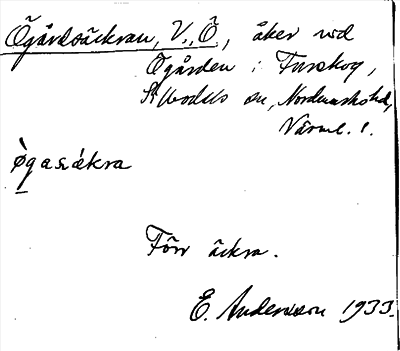 Ögårdsäckran, V., Ö, åker vid
Ögården i Furskog,
Silbodals sn, Nordmarks hd,
Värml. l.
ø̀gasækra
Förr äckra.
E. Andersson 1933.